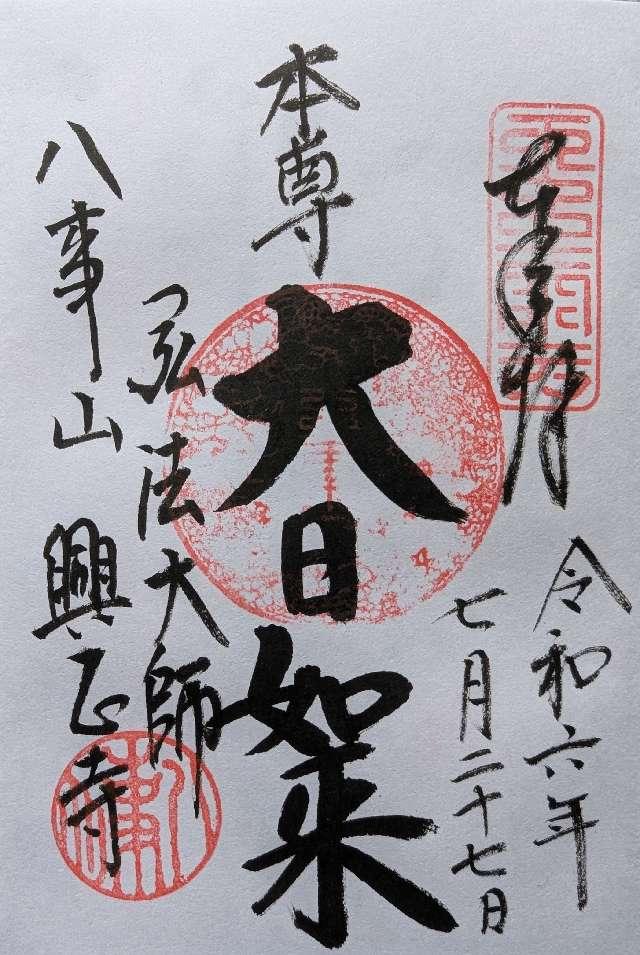 奉拝
令和六年
七月二十七日
本尊
大日如来
弘法大師
八事山
興正寺